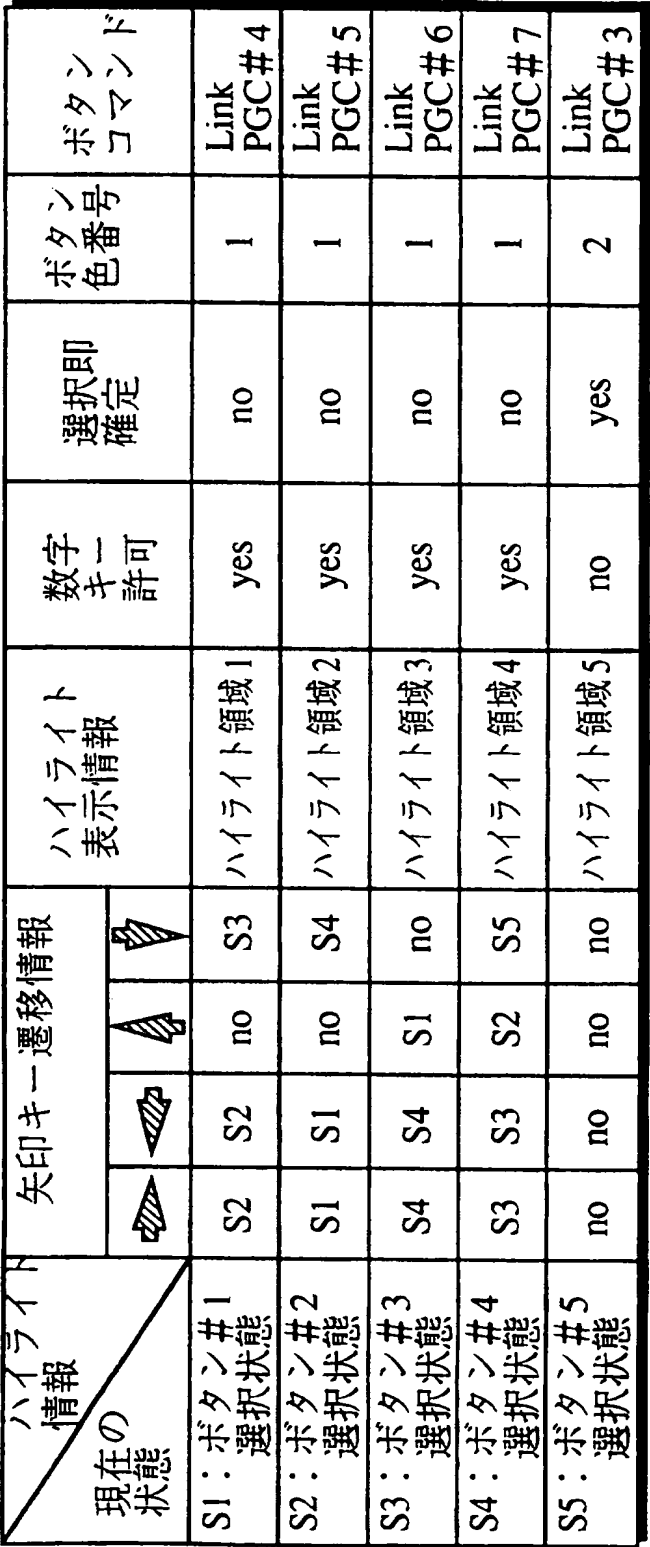 ハイライト
情報
現在の
状態
矢印キー遷移情報
ハイライト
表示情報
数字
キー
許可
選択即
確定
ボタン
色番号
ボタン
コマンド
S1：ボタン#1
選択状態
S2
S2
no
S3
ハイライト領域1
yes
no
1
Link
PGC#4
S2：ボタン#2
選択状態
S1
S1
no
S4
ハイライト領域2
yes
no
1
Link
PGC#5
S3：ボタン#3
選択状態
S4
S4
S1
no
ハイライト領域3
yes
no
1
Link
PGC#6
S4：ボタン#4
選択状態
S3
S3
S2
S5
ハイライト領域4
yes
no
1
Link
PGC#7
S5：ボタン#5
選択状態
no
no
no
no
ハイライト領域5
no
yes
2
Link
PGC#3